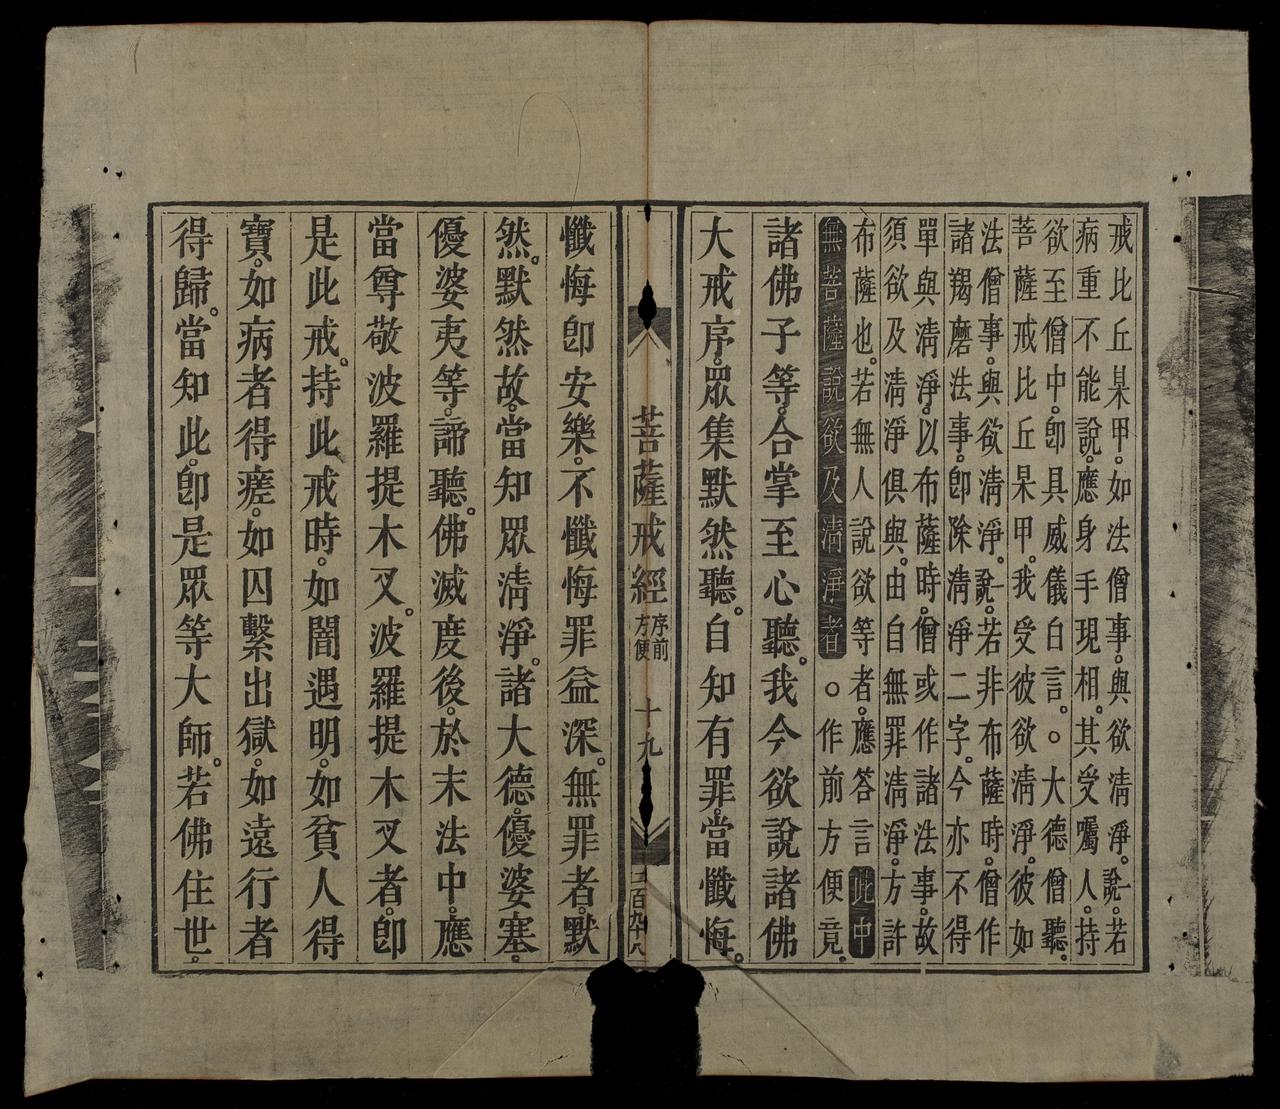 戒比丘杲甲。如法僧事。與欲清淨。說一。若
病重不能說。應身手現相。其受囑人。持
欲至僧中。卽具威儀白言。○大德僧聽。
菩薩戒比丘杲甲。我受彼欲清淨。彼如
法僧事。與欲清淨。說一。若非布薩時。僧作
諸羯磨法事。卽除清淨二字。今亦不得
單與清淨。以布薩時。僧或作諸法事。故
須欲及清淨俱與。由自無罪清淨。方許
布薩也。若無人說欲等者。應答言此中
無菩薩說欲及清淨者○作前方便竟。
諸佛子等。合掌至心聽。我今欲說諸佛
大戒序。眾集默然聽。自知有罪。當懺悔。
菩薩戒經 序前方便 十九 二百九十八
懺悔卽安樂。不懺悔罪益深。無罪者。默
然。默然故。當知眾清淨。諸大德。優婆塞。
優婆夷等。諦聽。佛滅度後。於末法中。應
當尊敬波羅提木叉。波羅提木叉者。卽
是此戒。持此戒時。如闇遇明。如貧人得
寶。如病者得瘥。如囚繫出獄。如遠行者
得歸。當知此。卽是眾等大師。若佛住世。